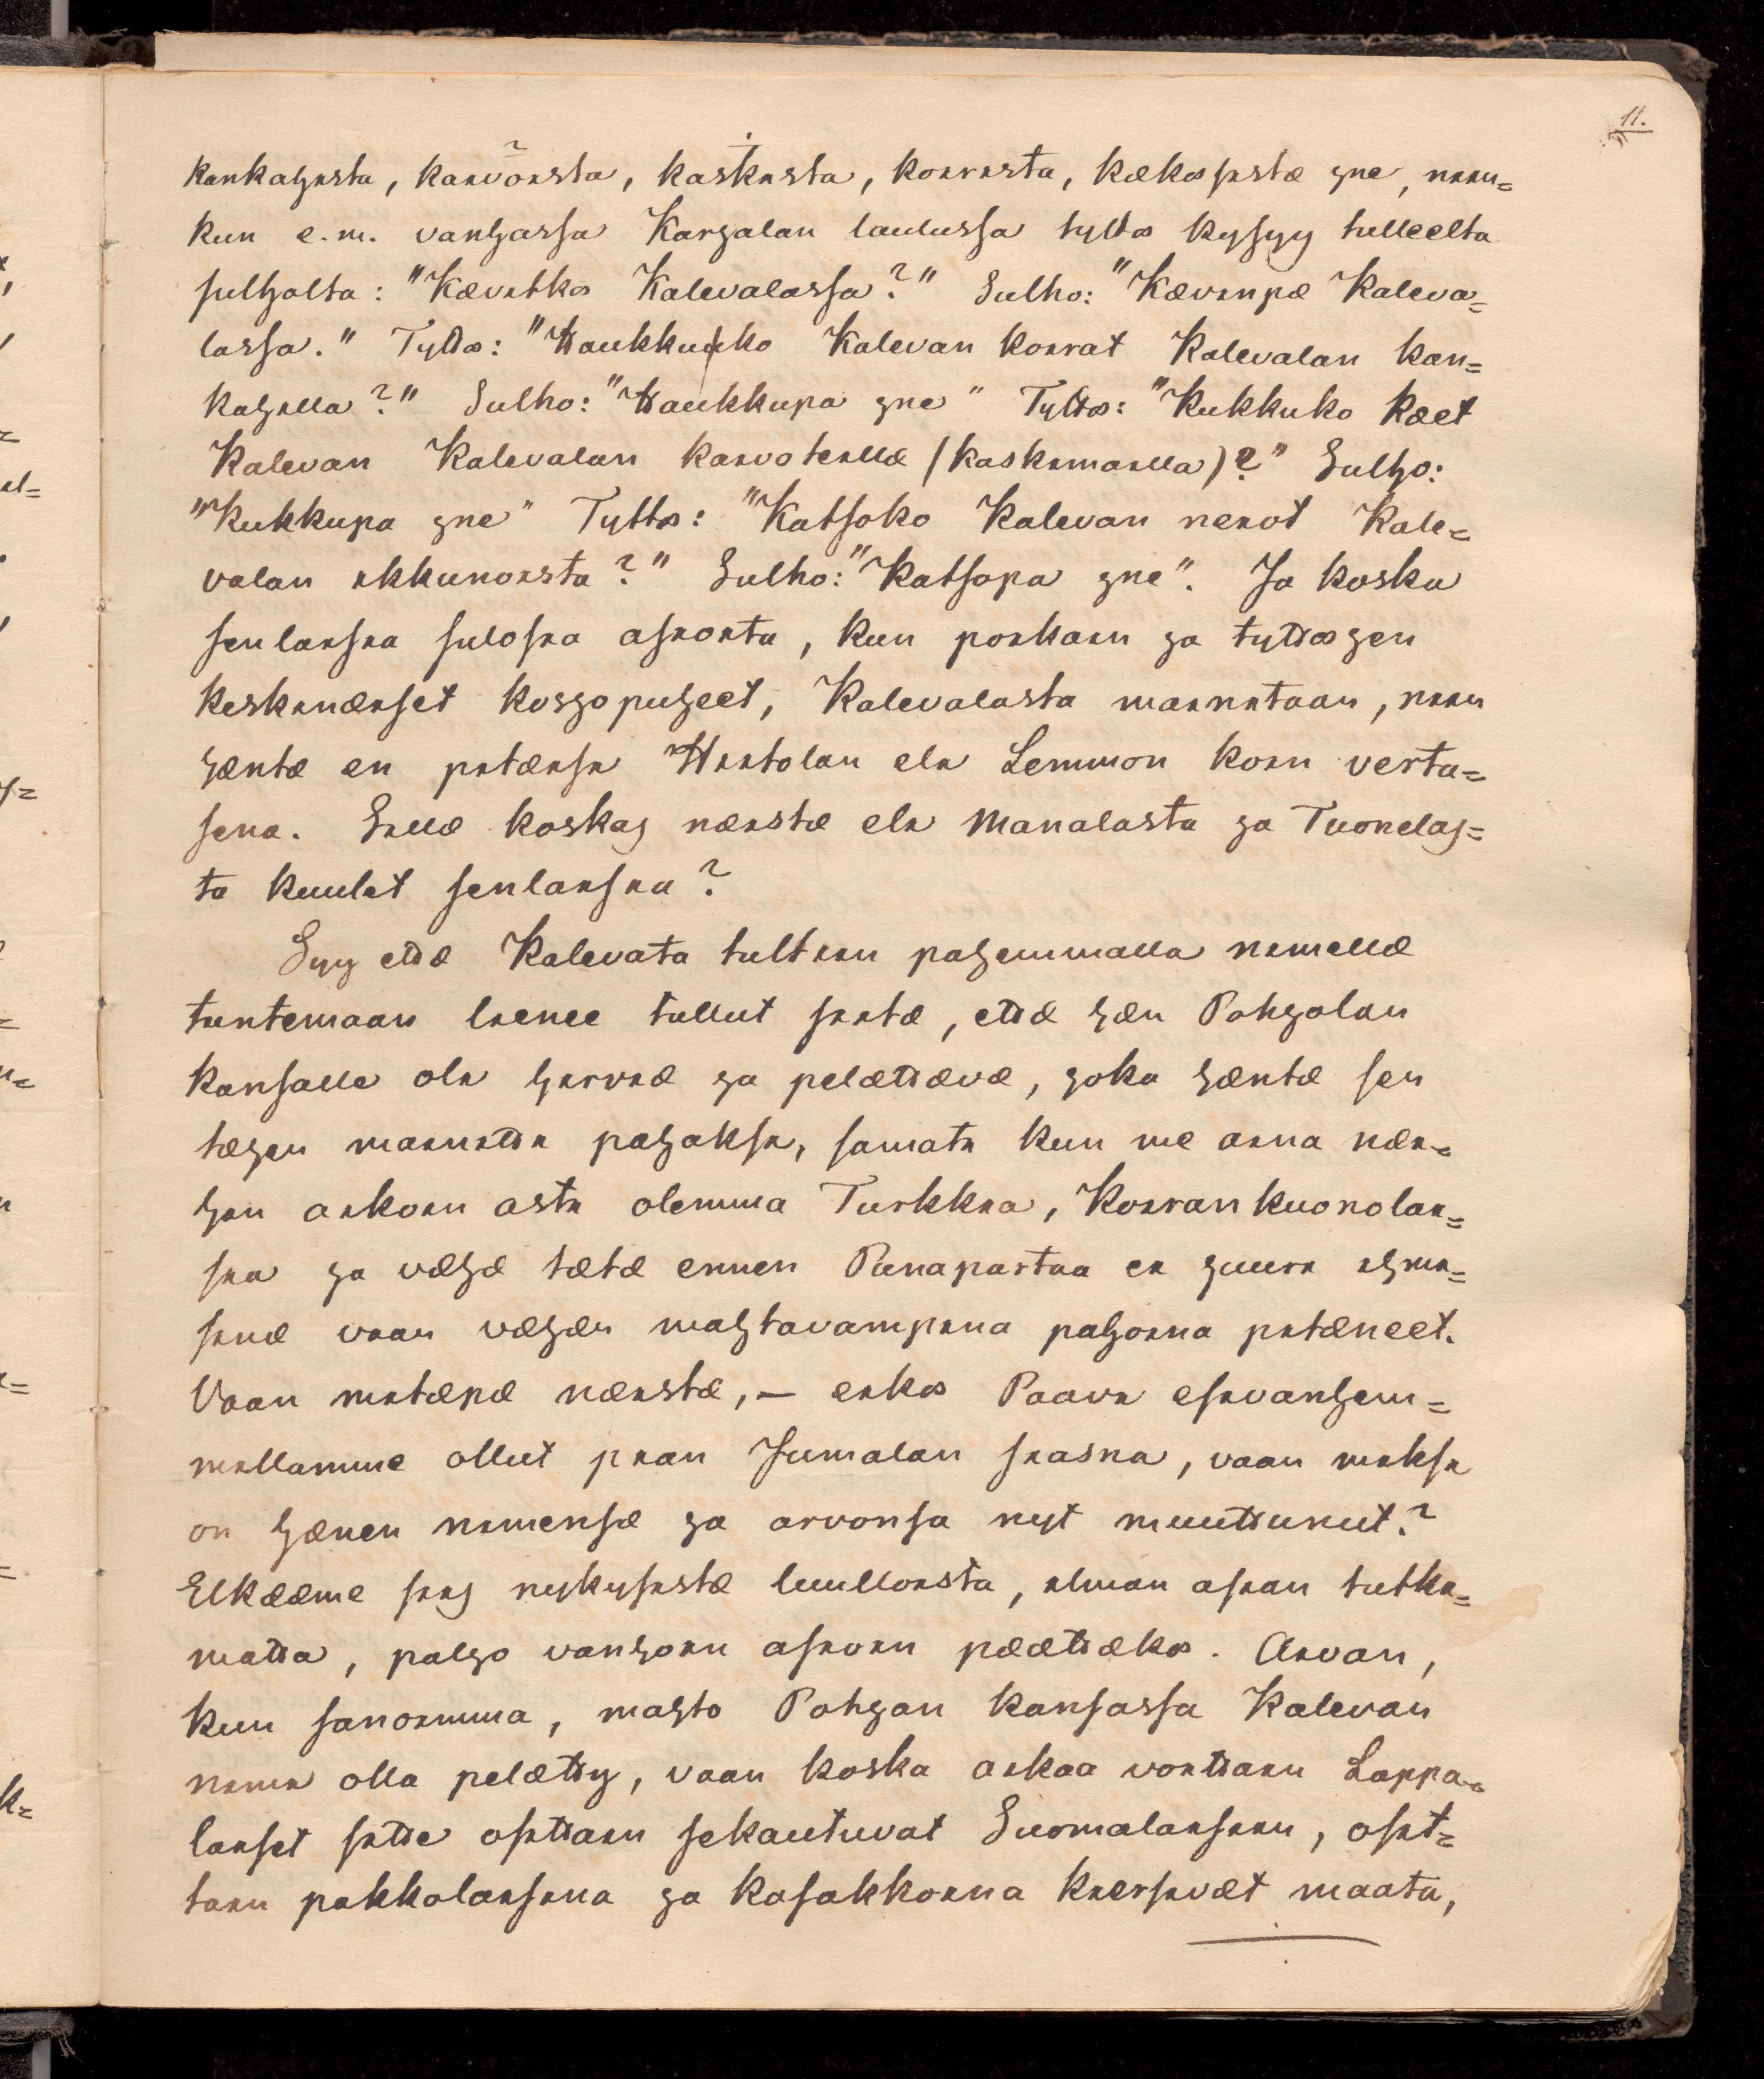 11.
kankahista, kaivoista, kaskista, koirista, kækœsistæ jne, niin=
kun e.m. vanhassa Karjalan laulussa tyttœ kysyy tulleelta
sulholta: "Kævitkœ Kalevalassa?" Sulho: "Kævinpæ Kaleva=
lassa." Tyttœ: "Haukkuuko Kalevan koirat Kalevalan kan=
kahilla?" Sulho: "Haukkupa jne" Tyttœ: "Kukkuko kæet
Kalevan Kalevalan kaivoteillæ (kaskimailla)?" Sulho:
"Kukkupa jne" Tyttœ: "Katsoko Kalevan neiot Kale=
valan ikkunoista?" Sulho: "Katsopa jne". Ja koska
senlaisia suloisia asioita, kun poikain ja tyttœjen
keskinæiset kosjopuheet, Kalevalasta mainitaan, niin
hæntæ en pitæisi Hiitolan eli Lemmon koin verta=
sena. Sillæ koskas næistæ eli Manalasta ja Tuonelas=
ta kuulit senlaisia?
Syy ettæ Kalevata tultiin pahemmalla nimellæ
tuntemaan lienee tullut siitæ, ettæ hæn Pohjolan
kansalle oli hirviæ ja pelættævæ, joka hæntæ sen
tæhen mainitti pahaksi, samati kun me aina næi=
hin aikoin asti olemma Turkkia, Koirankuonolai=
sia ja væhæ tætæ ennen Punapartaa ei juuri ihmi=
sinæ vaan væhæn mahtavampina pahoina pitæneet.
Vaan mitæpæ næistæ, — eikœ Paavi esivanhem=
millamme ollut pian Jumalan siasna, vaan miksi
on hænen nimensæ ja arvonsa nyt muuttunut?
Elkææme siis nykysistæ luulloista, ilman asian tutki=
matta, paljo vanhoin asioin pæættækœ. Aivan,
kun sanoimma, mahto Pohjan kansassa Kalevan
nimi olla pelætty, vaan koska aikaa voittain Lappa=
laiset sitte osittain sekautuvat Suomalaisiin, osit=
tain pakkolaisina ja kasakkoina kiersivæt maata,